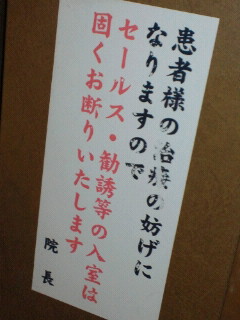 患者様の治療の妨げに
なりますので
セールス・勧誘等の入室は
固くお断りいたします
院長